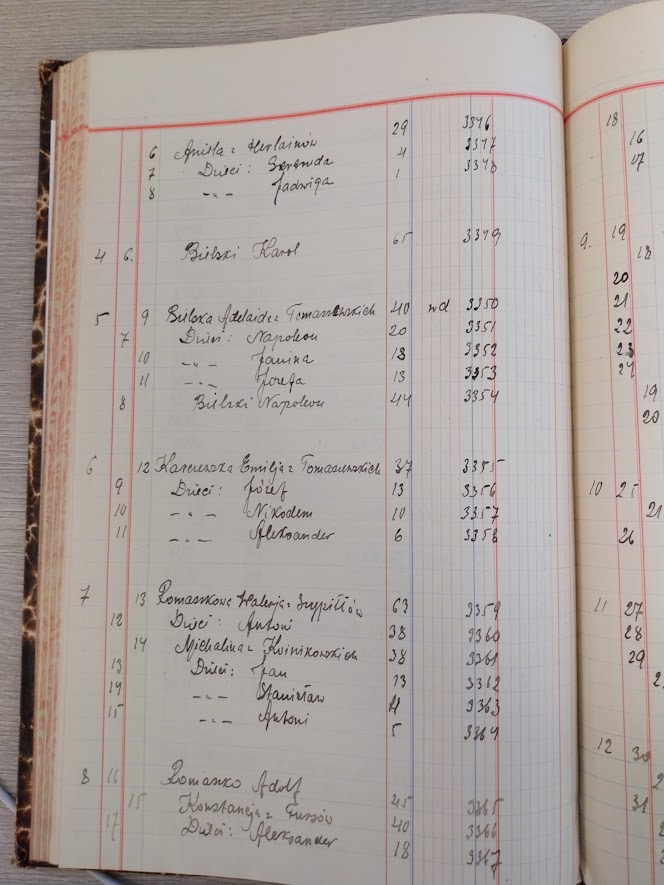 6 Aniela z Herlainów 29 3346
7 Dzieci: 4 3347
8 -"- Jadwiga 1 3348
4 6. Bielski Karol 65 3349
5 9 Bielska Adelaida z Tomaszewskich 40 wd 3350
7 Dzieci: Napoleon 20 3351
10 -"- Janina 18 3352
11 -"- Józefa 13 3353
8 Bielski Napoleon 44 3354
6 12 Karczewska Emilja z Tomaszewskich 37 3355
9 Dzieci: Józef 13 3356
10 -"- Nikodem 10 3357
11 -"- Aleksander 6 3358
7 13 Romaszkowa Walerja z Szypiłłów 63 3359
12 Dzieci: Antoni 38 3360
14 Michalina z Kwinikowskich 38 3361
13 Dzieci: Jan 13 3362
14 -"- Stanisław 3363
15 -"- Antoni 5 3364
8 16 Romaszko Adolf 45 3365
15 Konstancja z Fussów 40 3366
17 Dzieci: Aleksander 18 3367
18
16
17
9. 19
18
20
21
22
23
24
19
20
10 25
21
26
11 27
28
29
12 30
31